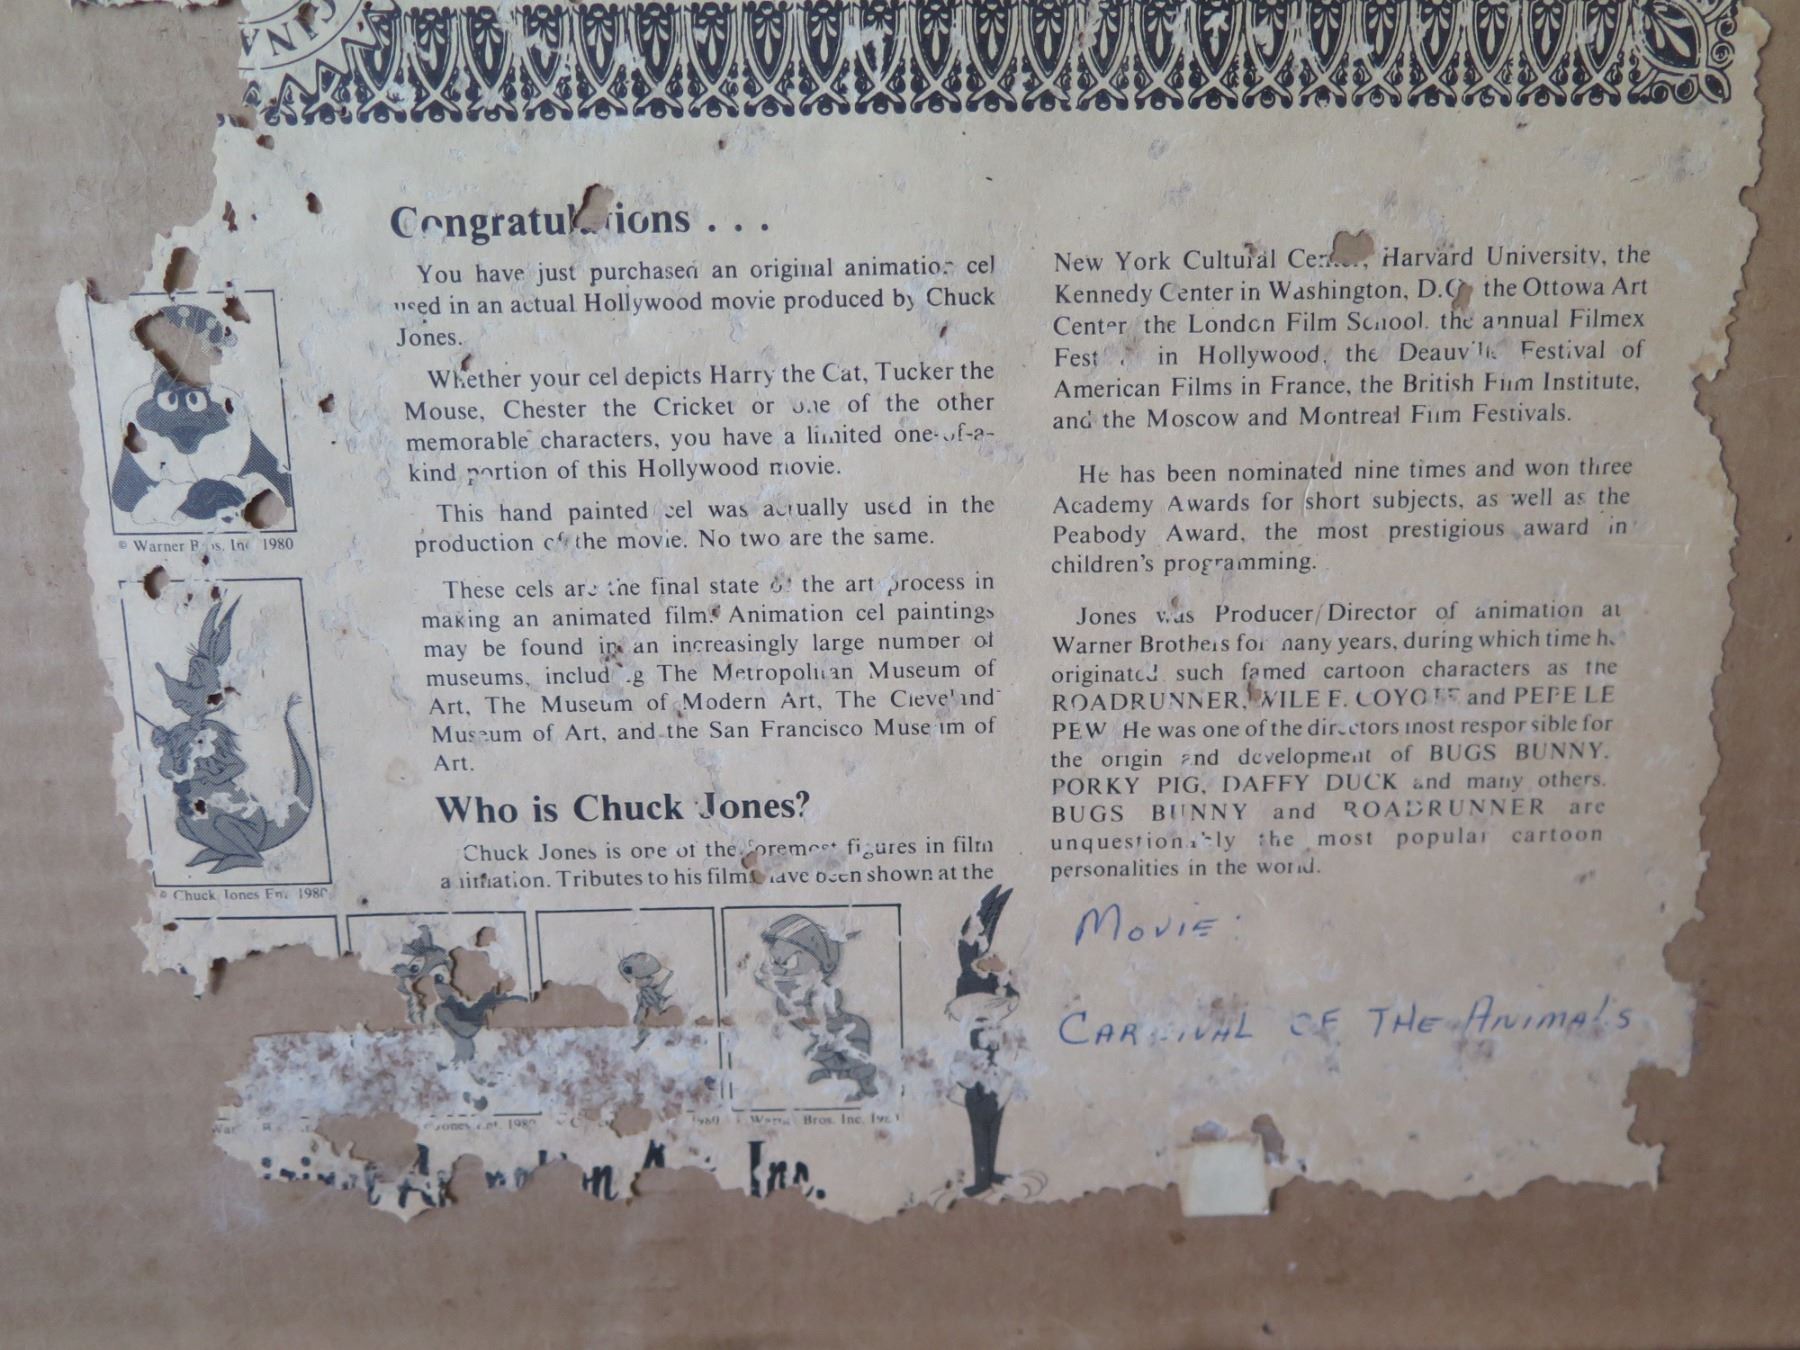 Congratulations . . .
You have just purchased an original animation cel
used in an actual Hollywood movie produced by Chuck
Jones.
Whether your cel depicts Harry the Cat, Tucker the
Mouse, Chester the Cricket or one of the other
memorable characters, you have a limited one-of-a-
kind portion of this Hollywood movie.
This hand painted cel was actually used in the
production of the movie. No two are the same.
These cels are the final state of the art process in
making an animated film. Animation cel paintings
may be found in an increasingly large number of
museums, including The Metropolitan Museum of
Art, The Museum of Modern Art, The Cleveland
Museum of Art, and the San Francisco Museum of
Art.
Who is Chuck Jones?
Chuck Jones is one of the foremost figures in film
animation. Tributes to his films have been shown at the
New York Cultural Center, Harvard University, the
Kennedy Center in Washington, D.C., the Ottowa Art
Center, the London Film School, the annual Filmex
Festival in Hollywood, the Deauville Festival of
American Films in France, the British Film Institute,
and the Moscow and Montreal Film Festivals.
He has been nominated nine times and won three
Academy Awards for short subjects, as well as the
Peabody Award, the most prestigious award in
children's programming.
Jones was Producer/Director of animation at
Warner Brothers for many years, during which time he
originated such famed cartoon characters as the
ROADRUNNER, WILE E. COYOTE and PEPE LE
PEW. He was one of the directors most responsible for
the origin and development of BUGS BUNNY,
PORKY PIG, DAFFY DUCK and many others.
BUGS BUNNY and ROADRUNNER are
unquestionably the most popular cartoon
personalities in the world.
Movie:
CARNIVAL OF THE ANIMALS
© Warner Bros. Inc. 1980
© Chuck Jones Ent. 1980
Jones Ent. 1980
1980
Warner Bros. Inc. 1980
Original Animation Art, Inc.